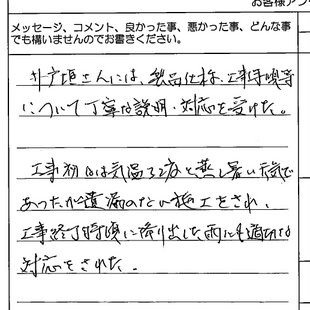 お客様アン
メッセージ、コメント、良かった事、悪かった事、どんな事
でも構いませんのでお書きください。
井戸垣さんには、製品仕様、工事手順等
について丁寧な説明・対応を受けた。
工事初日は気温32度と蒸し暑い天気で
あったが遺漏のない施工をされ、
工事終了時頃に降り出した雨にも適切な
対応をされた。